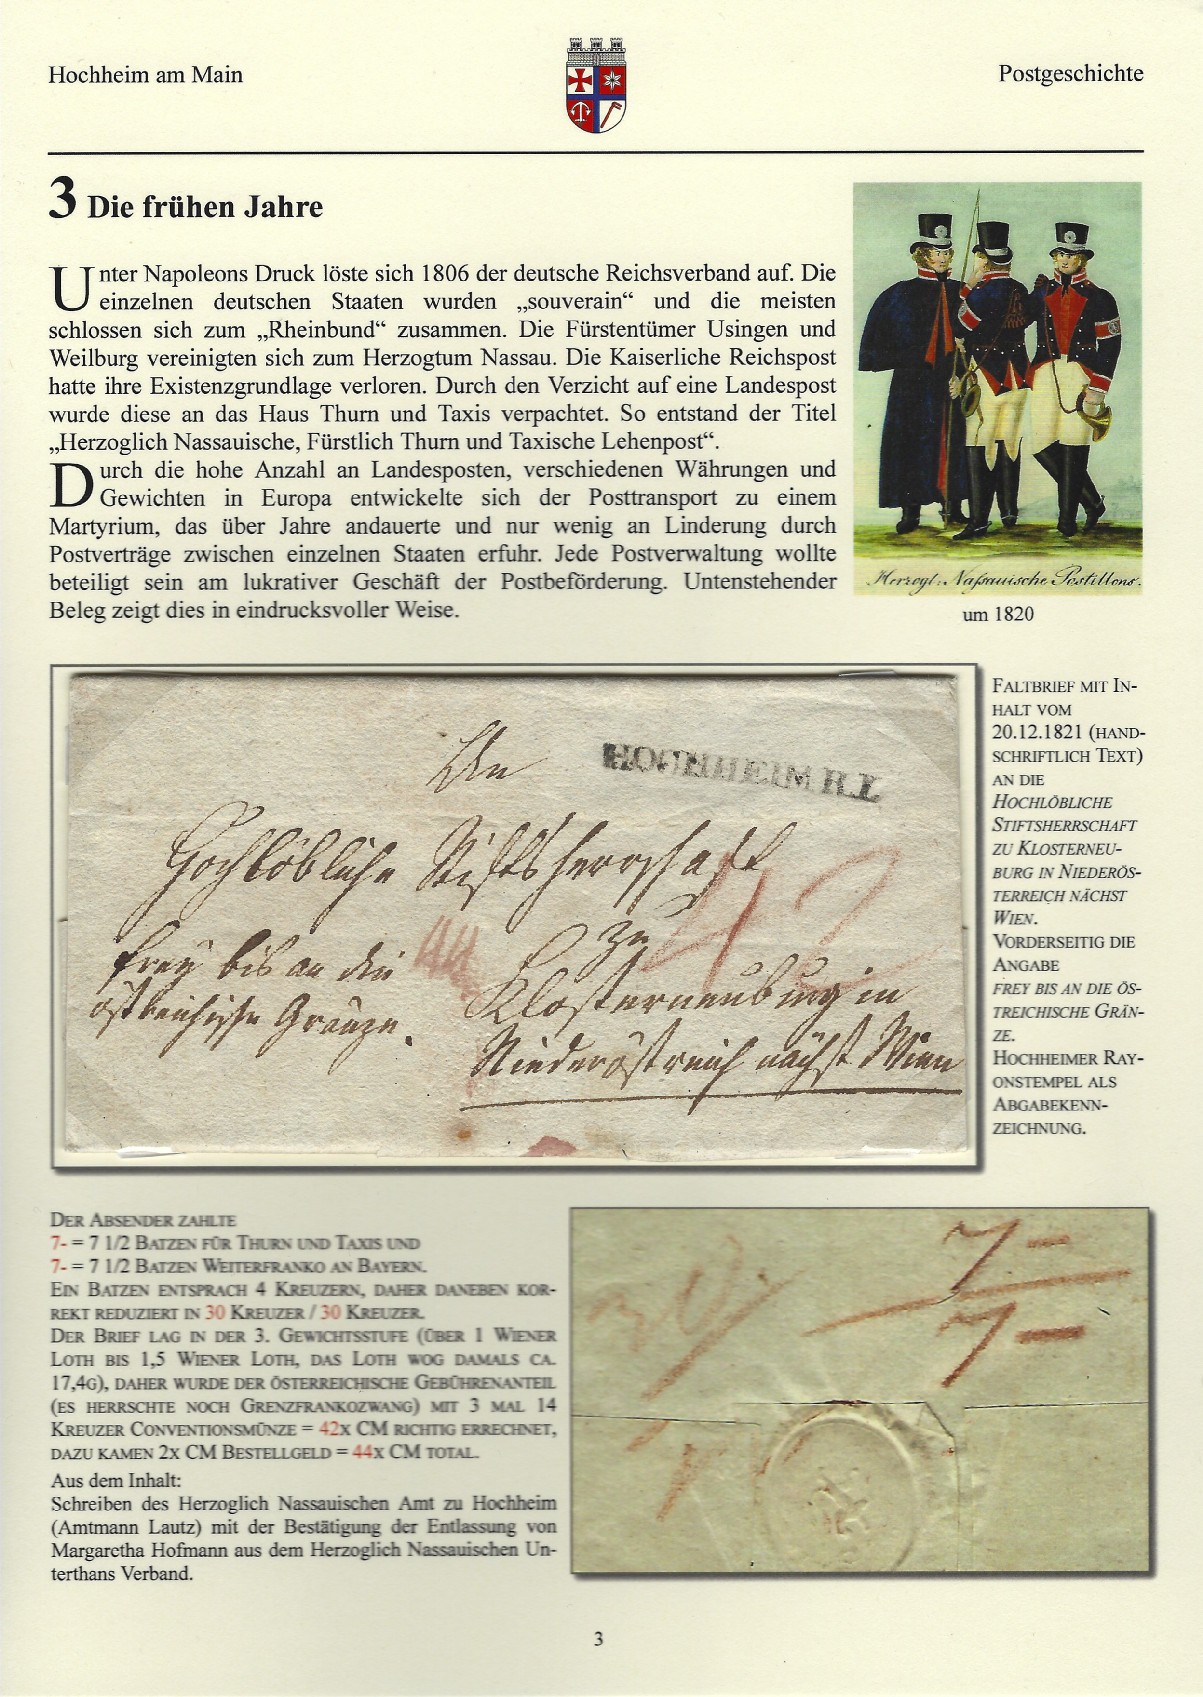 Hochheim am Main
Postgeschichte
3 Die frühen Jahre
Unter Napoleons Druck löste sich 1806 der deutsche Reichsverband auf. Die
einzelnen deutschen Staaten wurden „souverain“ und die meisten
schlossen sich zum „Rheinbund“ zusammen. Die Fürstentümer Usingen und
Weilburg vereinigten sich zum Herzogtum Nassau. Die Kaiserliche Reichspost
hatte ihre Existenzgrundlage verloren. Durch den Verzicht auf eine Landespost
wurde diese an das Haus Thurn und Taxis verpachtet. So entstand der Titel
„Herzoglich Nassauische, Fürstlich Thurn und Taxische Lehenpost“.
Durch die hohe Anzahl an Landesposten, verschiedenen Währungen und
Gewichten in Europa entwickelte sich der Posttransport zu einem
Martyrium, das über Jahre andauerte und nur wenig an Linderung durch
Postverträge zwischen einzelnen Staaten erfuhr. Jede Postverwaltung wollte
beteiligt sein am lukrativer Geschäft der Postbeförderung. Untenstehender
Beleg zeigt dies in eindrucksvoller Weise.
Herzogl: Naßauische Postillons.
um 1820
An
HOCHHEIM R.I.
Hochlöbliche Stiftsherrschaft
zu
42
44
frey bis an die
östreichische Gränze.
Klosterneuburg in
Niederöstreich nächst Wien
FALTBRIEF MIT IN-
HALT VOM
20.12.1821 (HAND-
SCHRIFTLICH TEXT)
AN DIE
HOCHLÖBLICHE
STIFTSHERRSCHAFT
ZU KLOSTERNEU-
BURG IN NIEDERÖS-
TERREICH NÄCHST
WIEN.
VORDERSEITIG DIE
ANGABE
FREY BIS AN DIE ÖS-
TREICHISCHE GRÄN-
ZE.
HOCHHEIMER RAY-
ONSTEMPEL ALS
ABGABEKENN-
ZEICHNUNG.
DER ABSENDER ZAHLTE
7- = 7 1/2 BATZEN FÜR THURN UND TAXIS UND
7- = 7 1/2 BATZEN WEITERFRANKO AN BAYERN.
EIN BATZEN ENTSPRACH 4 KREUZERN, DAHER DANEBEN KOR-
REKT REDUZIERT IN 30 KREUZER / 30 KREUZER.
DER BRIEF LAG IN DER 3. GEWICHTSSTUFE (ÜBER 1 WIENER
LOTH BIS 1,5 WIENER LOTH, DAS LOTH WOG DAMALS CA.
17,4G), DAHER WURDE DER ÖSTERREICHISCHE GEBÜHRENANTEIL
(ES HERRSCHTE NOCH GRENZFRANKOZWANG) MIT 3 MAL 14
KREUZER CONVENTIONSMÜNZE = 42X CM RICHTIG ERRECHNET,
DAZU KAMEN 2X CM BESTELLGELD = 44X CM TOTAL.
Aus dem Inhalt:
Schreiben des Herzoglich Nassauischen Amt zu Hochheim
(Amtmann Lautz) mit der Bestätigung der Entlassung von
Margaretha Hofmann aus dem Herzoglich Nassauischen Un-
terthans Verband.
7-
7-
3